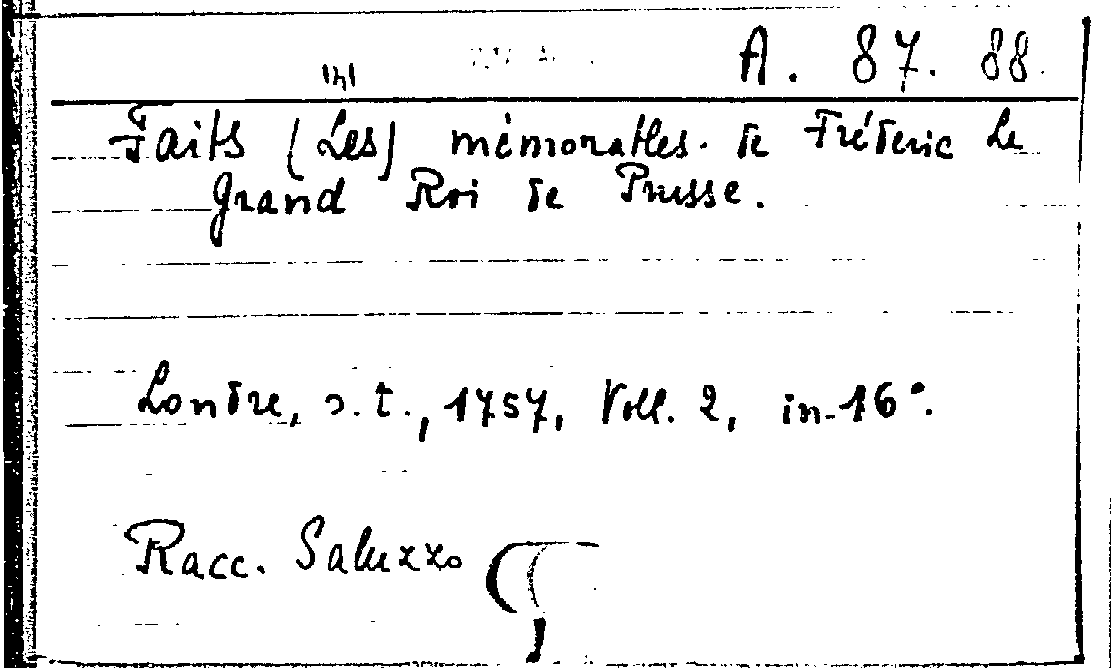 A. 87. 88.
Faits (Les) mémorables. de Fréderic Le
Grand Roi de Prusse.
Londre, s.t., 1757, Voll. 2, in-16°.
Racc. Saluzzo